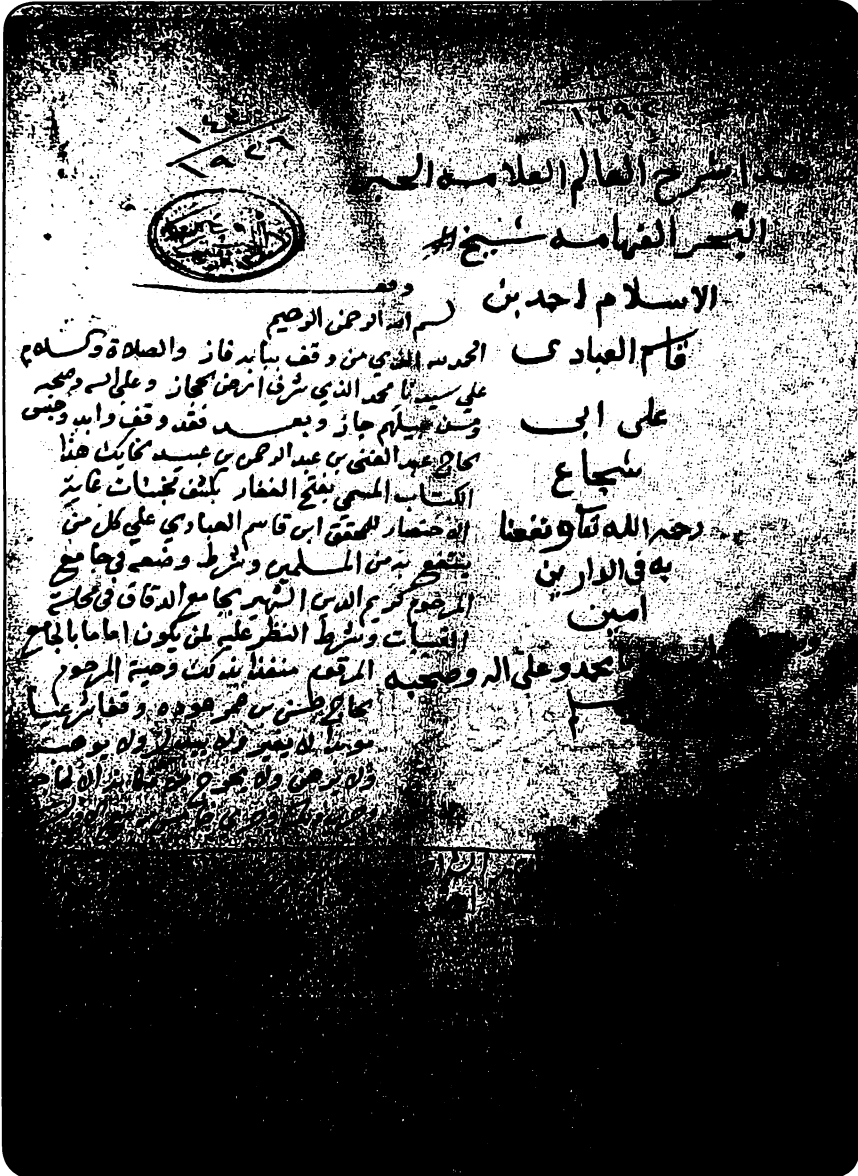 ١٦٩٤
هذا شرح العالم العلامة الحبر
البحر الفهامه شيخ
الاسلام احمد بن
قاسم العبادى
على ابى
شجاع
رحمه الله تعا ونفعنا
به فى الدارين
امين
بمحمد وعلى اله وصحبه
وسلم
١٤٤
١٩٤٦
وقف
بسم الله الرحمن الرحيم
الحمد لله الذي من وقف ببابه فاز والصلاة والسلام
علي سيدنا محمد الذي شرف ارض الحجاز وعلي اله وصحبه
ومن جاز وبعد فقد وقف وابد وحبس
الحاج عبد الغني بن عبد الرحمن بن عبيد هذا
الكتاب المسمي بفتح الغفار بكشف مخبئات غاية
الاختصار للمحقق ابن قاسم العبادي علي كل من
ينتفع به من المسلمين وشرط وضعه في جامع
المرحوم كريم الدين الشهير بجامع الدقاق في محلة
القبيبات وشرط النظر عليه لمن يكون اماما بالجامع
المرقوم منفذا بذلك وصية المرحوم
الحاج حسن بن حموده وقفا شرعيا
مؤبدا لا يغير ولا يبدل ولا يوهب
ولا يرهن ولا يخرج من